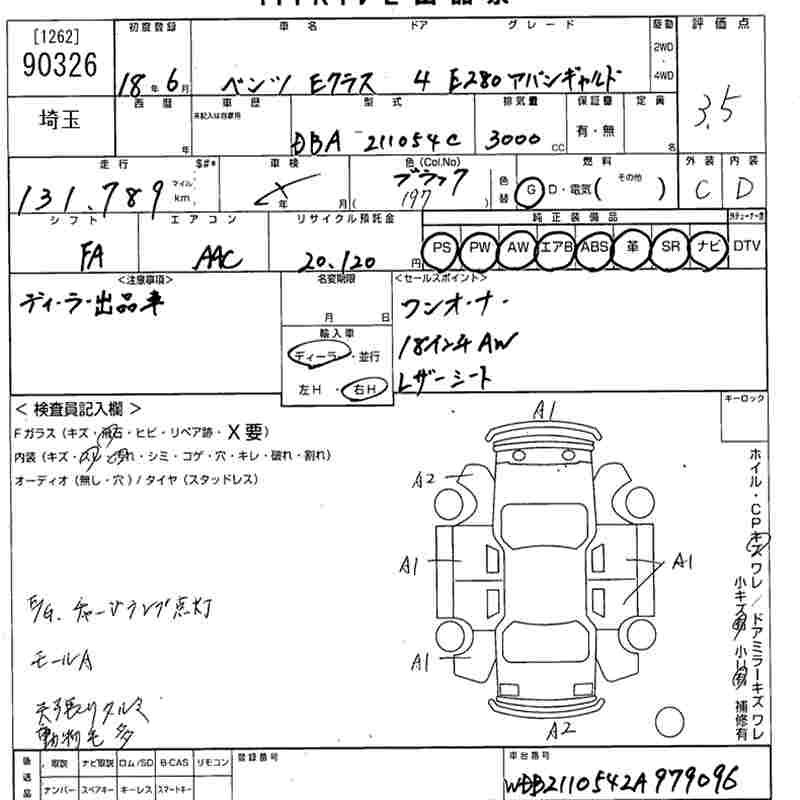 [1262]
90326
初度登録
18年6月
車名
ベンツ Eクラス
ドア
4
グレード
E280 アバンギャルド
駆動
2WD
4WD
評価点
3.5
埼玉
西暦
年
車歴
未記入は自家用
型式
DBA 211054C
排気量
3000 CC
保証書
有・無
定員
名
走行
131,789
$#*
マイル
km
車検
年 月
色(Col,No)
ブラック
( 197 )
色替
燃料
G D・電気( その他 )
外装
C
内装
D
シフト
FA
エアコン
AAC
リサイクル預託金
20,120 円
純正装備品
PS PW AW エアB ABS 革 SR ナビ
DTV
<注意事項>
ディーラー出品車
名変期限
月 日
輸入車
ディーラー・並行
左H・右H
<セールスポイント>
ワンオーナー
18インチAW
レザーシート
<検査員記入欄>
Fガラス(キズ・飛石・ヒビ・リペア跡・X要)
内装(キズ・スレ・汚れ・シミ・コゲ・穴・キレ・破れ・割れ)
オーディオ(無し・穴)/タイヤ(スタッドレス)
キーロック
A1
A2
A1
A1
A1
A2
ホイル・CPキズ ワレ/ドアミラーキズ ワレ
小キズ 小凹 補修有
E/G. チャージランプ点灯
モールA
天張りタルミ
動物毛 多
後送品
取説 ナビ取説 ロム/SD B-CAS リモコン
ナンバー スペアキー キーレス スマートキー
登録番号
車台番号
WDB2110542A979096